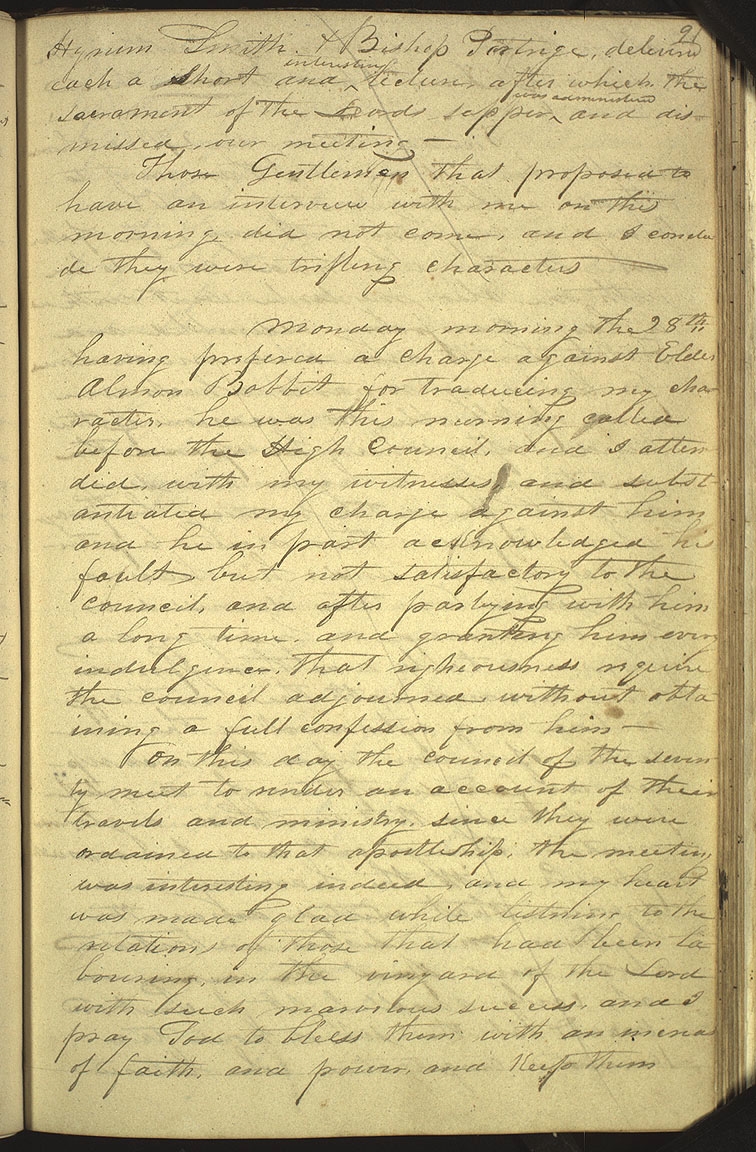 91
Hyrum Smith. & Bishop Partrige, deliverd
each a short and interesting, lecture, after which the
sacrament of the Lords supper, was administered and dis-
missed our meeting—
Those Gentlemen that proposed to
have an interview with me on this
morning did not come, and I conclu
de they were trifling characters
Monday morning the 28th
having prefered a charge against Elder
Almon Babbit for traducing my cha-
racter, he was this morning called
before the High Council, and I atten-
ded, with my witnesses, and subst-
antiated my charge against him
and he in part acknowledged his
fault but not satisfactory to the
council, and after parleying with him
a long time. and granting him every
indulgence, that righeousness require
the council adjourned without obta
ining a full confession from him—
On this day the council of the seven-
ty meet to render an account of their
travels and ministry, since they were
ordained to that apostleship, the meeting
was interesting indeed, and my heart
was made glad while listning to the
relations of those that had been la-
bouring, in the vinyard of the Lord
with such marvilous success, and I
pray God to bless them with an increas
of faith, and power, and keep them